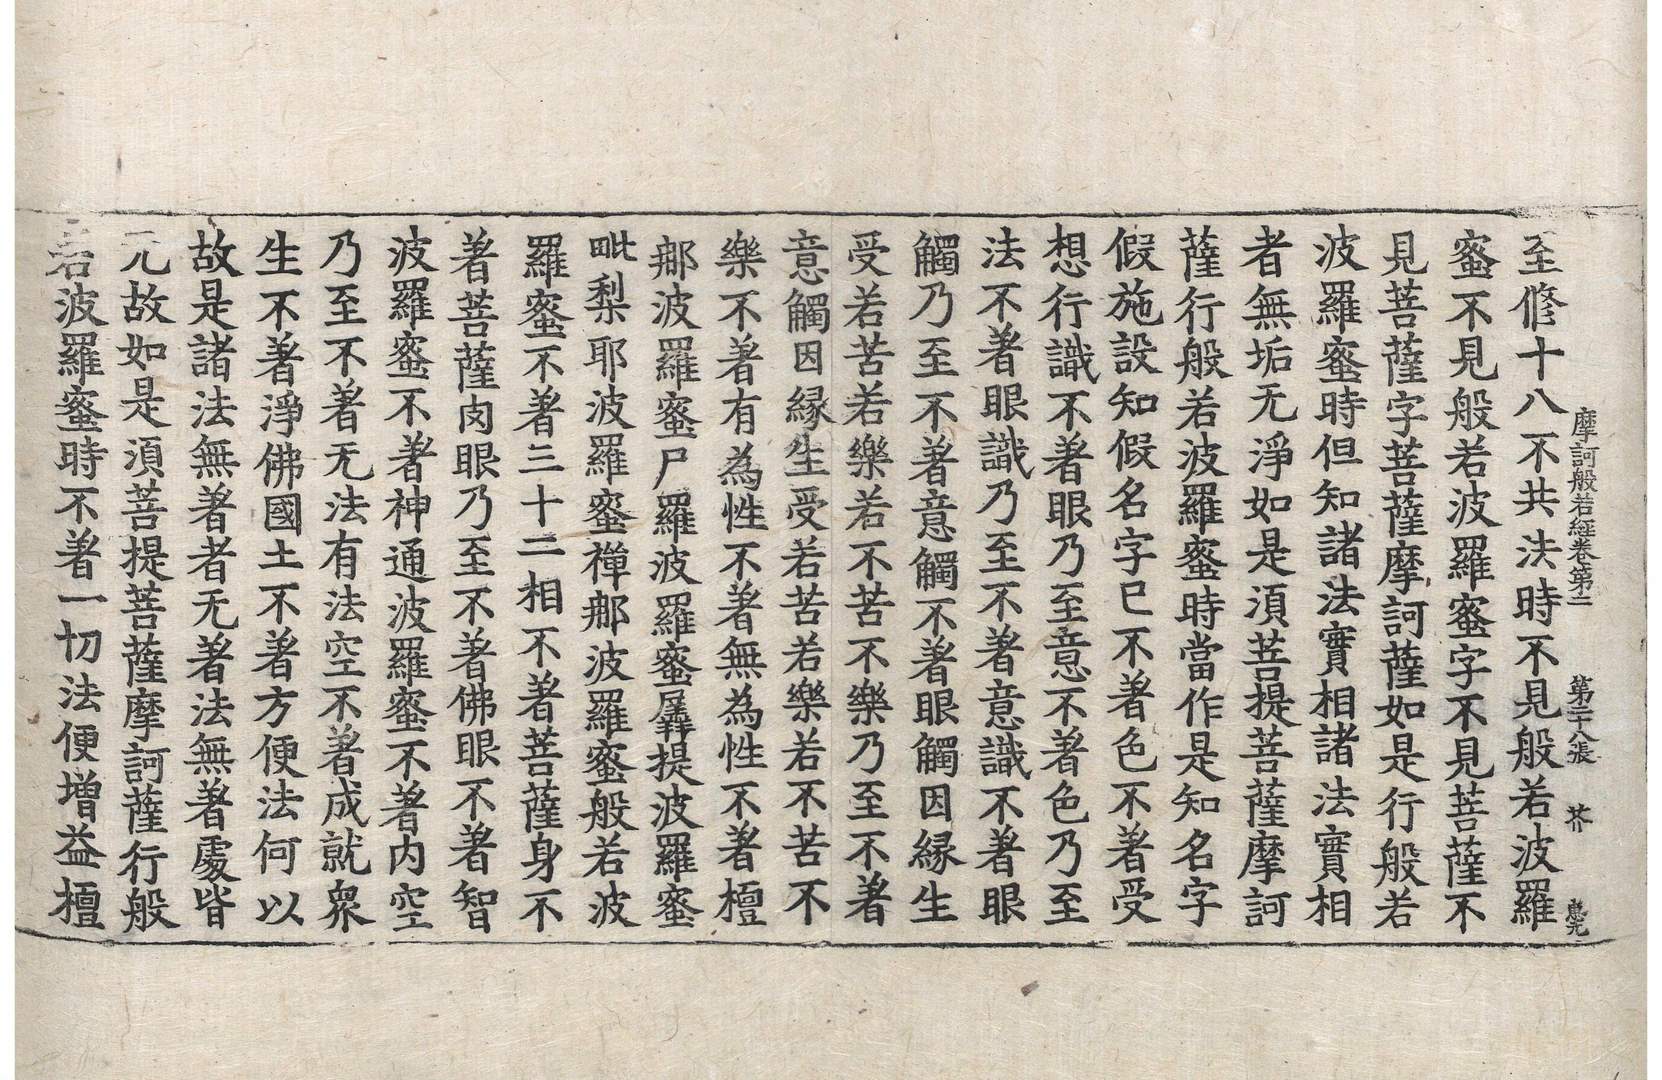 摩訶般若經卷第二　第二十八張　芥
至脩十八不共法時不見般若波羅
蜜不見般若波羅蜜字不見菩薩不
見菩薩字菩薩摩訶薩如是行般若
波羅蜜時但知諸法實相諸法實相
者無垢无淨如是須菩提菩薩摩訶
薩行般若波羅蜜時當作是知名字
假施設知假名字已不著色不著受
想行識不著眼乃至意不著色乃至
法不著眼識乃至不著意識不著眼
觸乃至不著意觸不著眼觸因緣生
受若苦若樂若不苦不樂乃至不著
意觸因緣生受若苦若樂若不苦不
樂不著有為性不著無為性不著檀
那波羅蜜尸羅波羅蜜羼提波羅蜜
毗梨耶波羅蜜禪那波羅蜜般若波
羅蜜不著三十二相不著菩薩身不
著菩薩肉眼乃至不著佛眼不著智
波羅蜜不著神通波羅蜜不著內空
乃至不著无法有法空不著成就眾
生不著淨佛國土不著方便法何以
故是諸法無著者无著法無著處皆
无故如是須菩提菩薩摩訶薩行般
若波羅蜜時不著一切法便增益檀